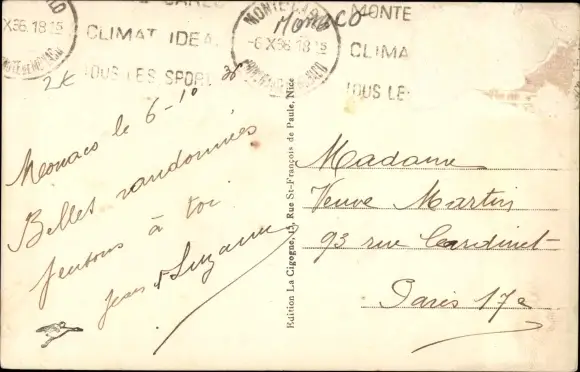 MONTE-CARLO
X56.1815
CLIMAT IDEA
TOUS LES SPOR
MONTE
-6 X56.1815
Monaco
MONTE
CLIMA
TOUS LES
2x
Monaco le 6-10
Belles randonnées
pensons à toi.
Jean & Suzanne
Edition La Cigogne, 13, Rue St-François de Paule, Nice
Madame
Veuve Martin
93 rue Cardinet
Paris 17e